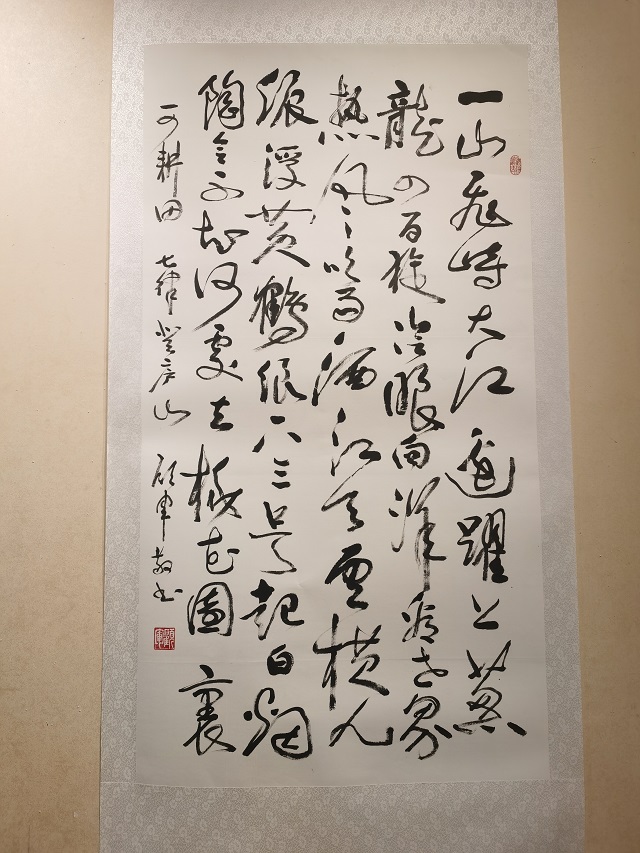 一山飛峙大江邊躍上葱
龍四百旋冷眼向洋看世界
热風吹雨洒江天雲横九
派浮黄鶴浪下三吴起白烟
陶令不知何處去桃花園裏
可耕田 七律登庐山 顾軍敬书